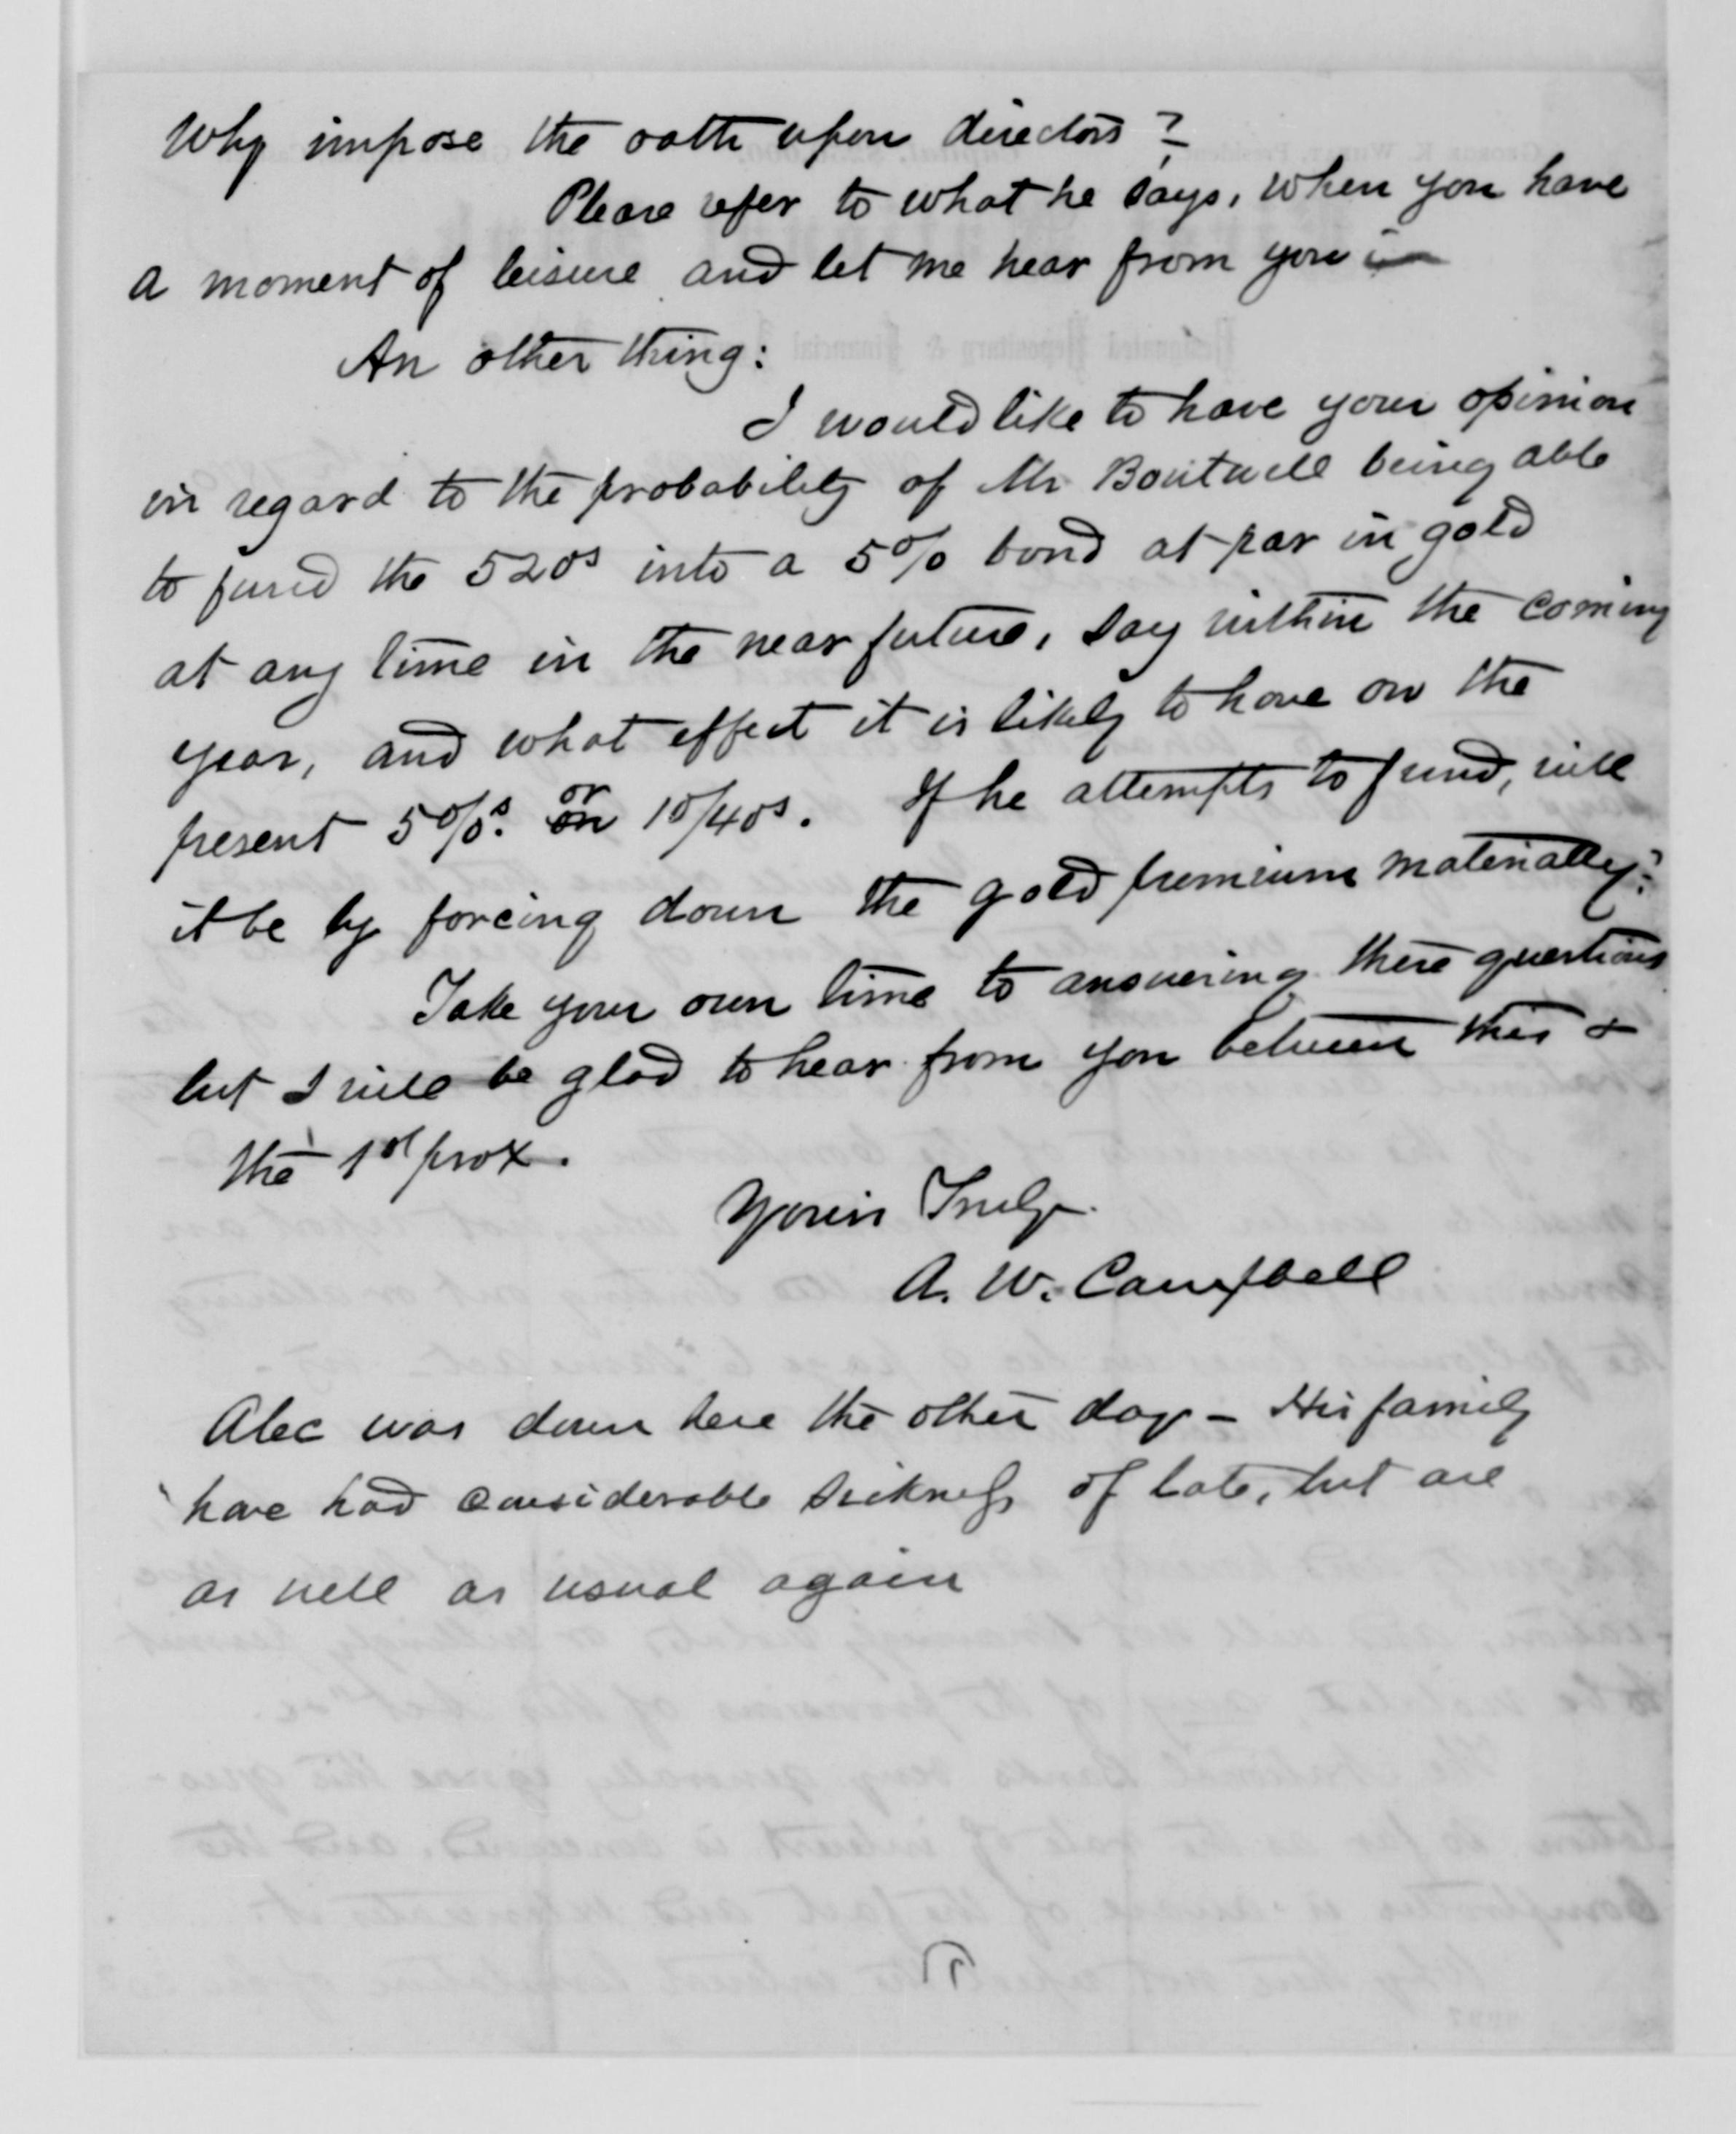 Why impose the oath upon directors?
Please refer to what he says, when you have
a moment of leisure and let me hear from you
An other thing:
I would like to have your opinion
in regard to the probability of Mr Boutwell being able
to fund the 520s into a 5% bond at par in gold
at any time in the near future, say within the coming
year, and what effect it is likely to have on the
present 5%s. or 10/40s. If he attempts to fund, will
it be by forcing down the gold premium materially?
Take your own time to answering these questions
but I will be glad to hear from you between this &
the 1st prox.
Yours Truly
A. W. Campbell
Alec was down here the other day - His family
have had considerable sickness of late, but are
as well as usual again